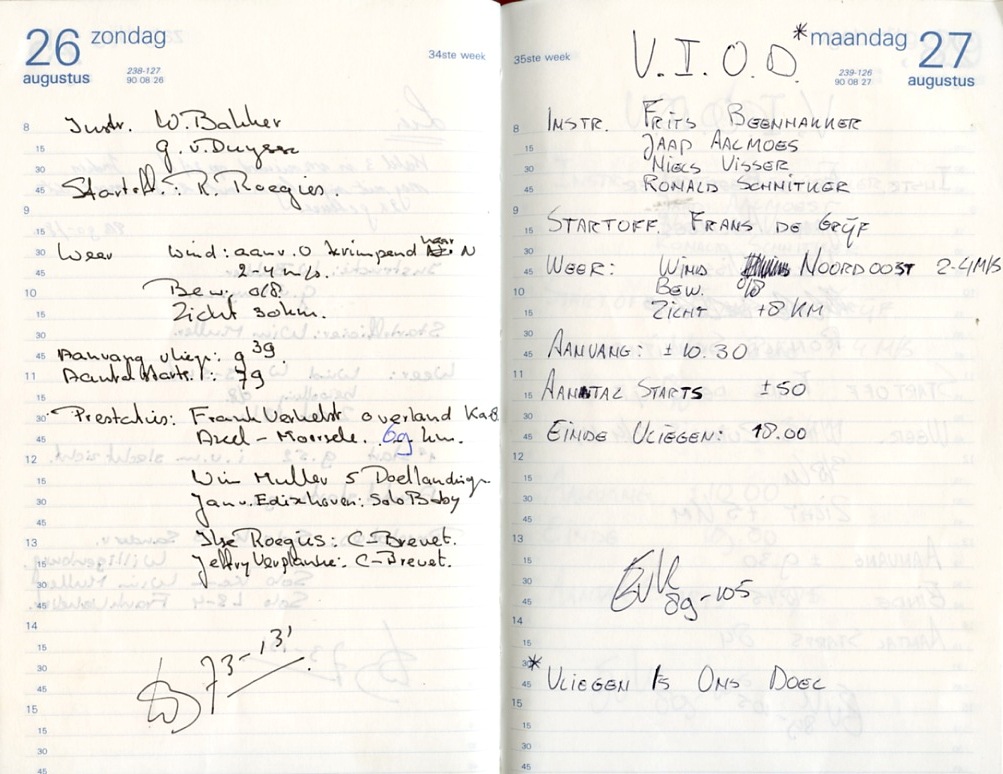 26 zondag
augustus
238-127
90 08 26
34ste week
8 Instr. W. Bakker
15 G. v. Duyse
30
45 Startoff.: R. Roegies
9
15
30 Weer Wind: aanv. O krimpend naar N
45 2-4 m/s.
10 Bew. o/8.
15 Zicht 30km.
30
45 Aanvang vliegn: 9 39.
11 Aantal starts: 79
15
30 Prestaties: Frank Verhelst overland Ka8
45 Axel - Moersele. 69 km.
12
15 Wim Muller 5 Doellandingn
30 Jan v. Edixhoven: Solo Baby
45
13 Ilse Roegies: C-Brevet.
15 Jeffry Verplanke: C-Brevet.
30
45
14
15 73-131
30
45
15
15
30
45
35ste week
V.I.O.D. *
maandag 27
augustus
239-126
90 08 27
8 INSTR. FRITS BEENHAKKER
15 JAAP AALMOES
30 NIELS VISSER
45 RONALD SCHNITKER
9
15 STARTOFF. FRANS DE GRIJF
30
45 WEER: WIND NOORDOOST 2-4 M/S
10 BEW. 0/8
15 ZICHT +8 KM
30
45 AANVANG: ± 10.30
11
15 AANTAL STARTS ±50
30
45 EINDE VLIEGEN: 18.00
12
15
30
45
13
15
30
45 89-105
14
15
30 *
45 VLIEGEN IS ONS DOEL
15
15
30
45